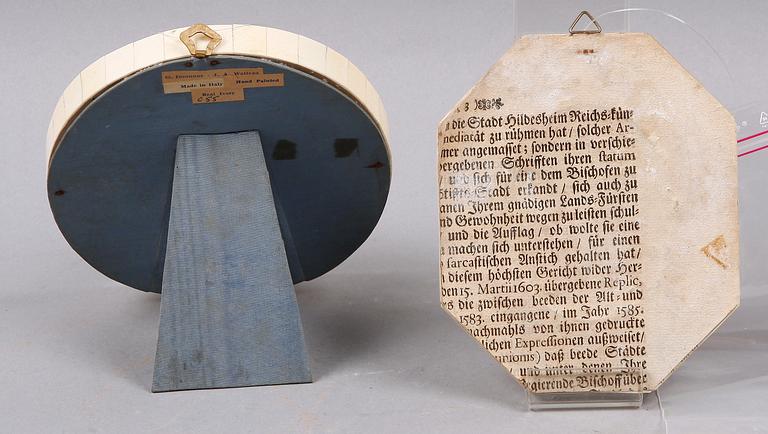 Made in Italy
Hand Painted
Real Ivory
C 55
3
die Stadt Hildesheim Reichs-kün-
mediatät zu rühmen hat / solcher Ar-
angemasset; sondern in verschie-
vergebenen Schrifften ihren statum
und sich für eine dem Bischofen zu
Stiffts-Stadt erkandt / sich auch zu
Ihrem gnädigen Lands-Fürsten
Gewohnheit wegen zu leisten schul-
und die Aufflag / ob wolte sie eine
machen sich unterstehen / für einen
sarcastischen Anstich gehalten hat /
diesem höchsten Gericht wider Her-
den 15. Martii 1603. übergebene Replic,
die zwischen beeden der Alt- und
1583. eingangene / im Jahr 1585.
nachmahls von ihnen gedruckte
lichen Expressionen außweiset /
unionis) daß beede Städte
und unter denen Ihre
Regierende Bischoff über